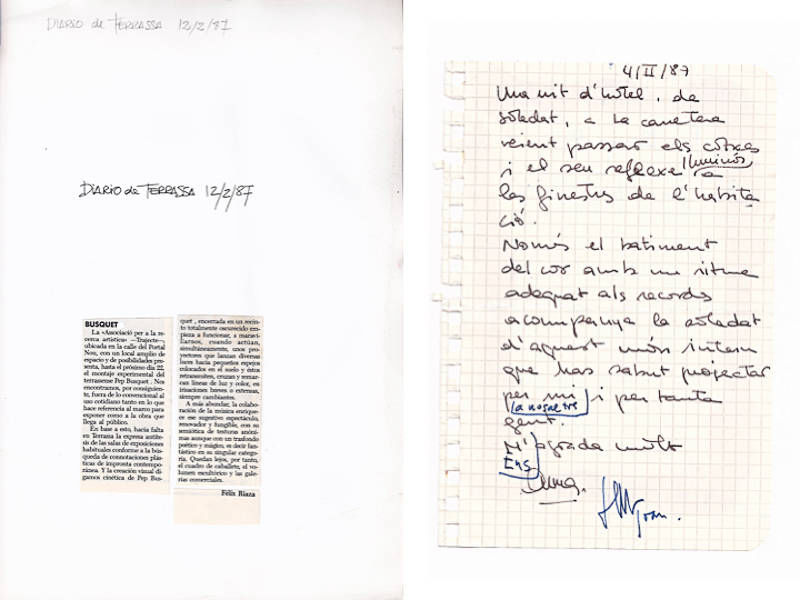 DIARIO de TERRASSA 12/2/87
DIARIO de TERRASSA 12/2/87
BUSQUET
La «Associació per a la re-
cerca artística» —Trajecte—,
ubicada en la calle del Portal
Nou, con un local amplio de
espacio y de posibilidades pre-
senta, hasta el próximo día 22,
el montaje experimental del
terrasense Pep Busquet. Nos
encontramos, por consiguien-
te, fuera de lo convencional al
uso cotidiano tanto en lo que
hace referencia al marco para
exponer como a la obra que
llega al público.
En base a esto, hacía falta
en Terrassa la expresa antíte-
sis de las salas de exposiciones
habituales conforme a la bús-
queda de connotaciones plás-
ticas de impronta contempo-
ránea. Y la creación visual di-
gamos cinética de Pep Bus-
quet, encerrada en un recin-
to totalmente oscurecido em-
pieza a funcionar, a maravi-
llarnos, cuando actúan,
simultáneamente, unos pro-
yectores que lanzan diversas
luces hacia pequeños espejos
colocados en el suelo y éstos
retransmiten, cruzan y remar-
can líneas de luz y color, en
irisaciones breves o extensas,
siempre cambiantes.
A más abordar, la colabora-
ción de la música enrique-
ce ese sugestivo espectáculo,
renovador y fungible, con su
semiótica de texturas anóni-
mas aunque con un trasfondo
poético y mágico, es decir fan-
tástico en su singular catego-
ría. Quedan lejos, por tanto,
el cuadro de caballete, el vo-
lumen escultórico y las gale-
rías comerciales.
Félix Riaza
4/II/87
Una nit d'hotel, de
soledat, a la carretera
veient passar els cotxes
i el seu reflexe lluminós a
les finestres de l'habita
ció.
Només el batiment
del cor amb un ritme
adequat als records
acompanya la soledat
d'aquest món intern
que has sabut projectar
per mi i per tanta
(a nosaltres
gent.
M'agrada molt
Ens
Joan.